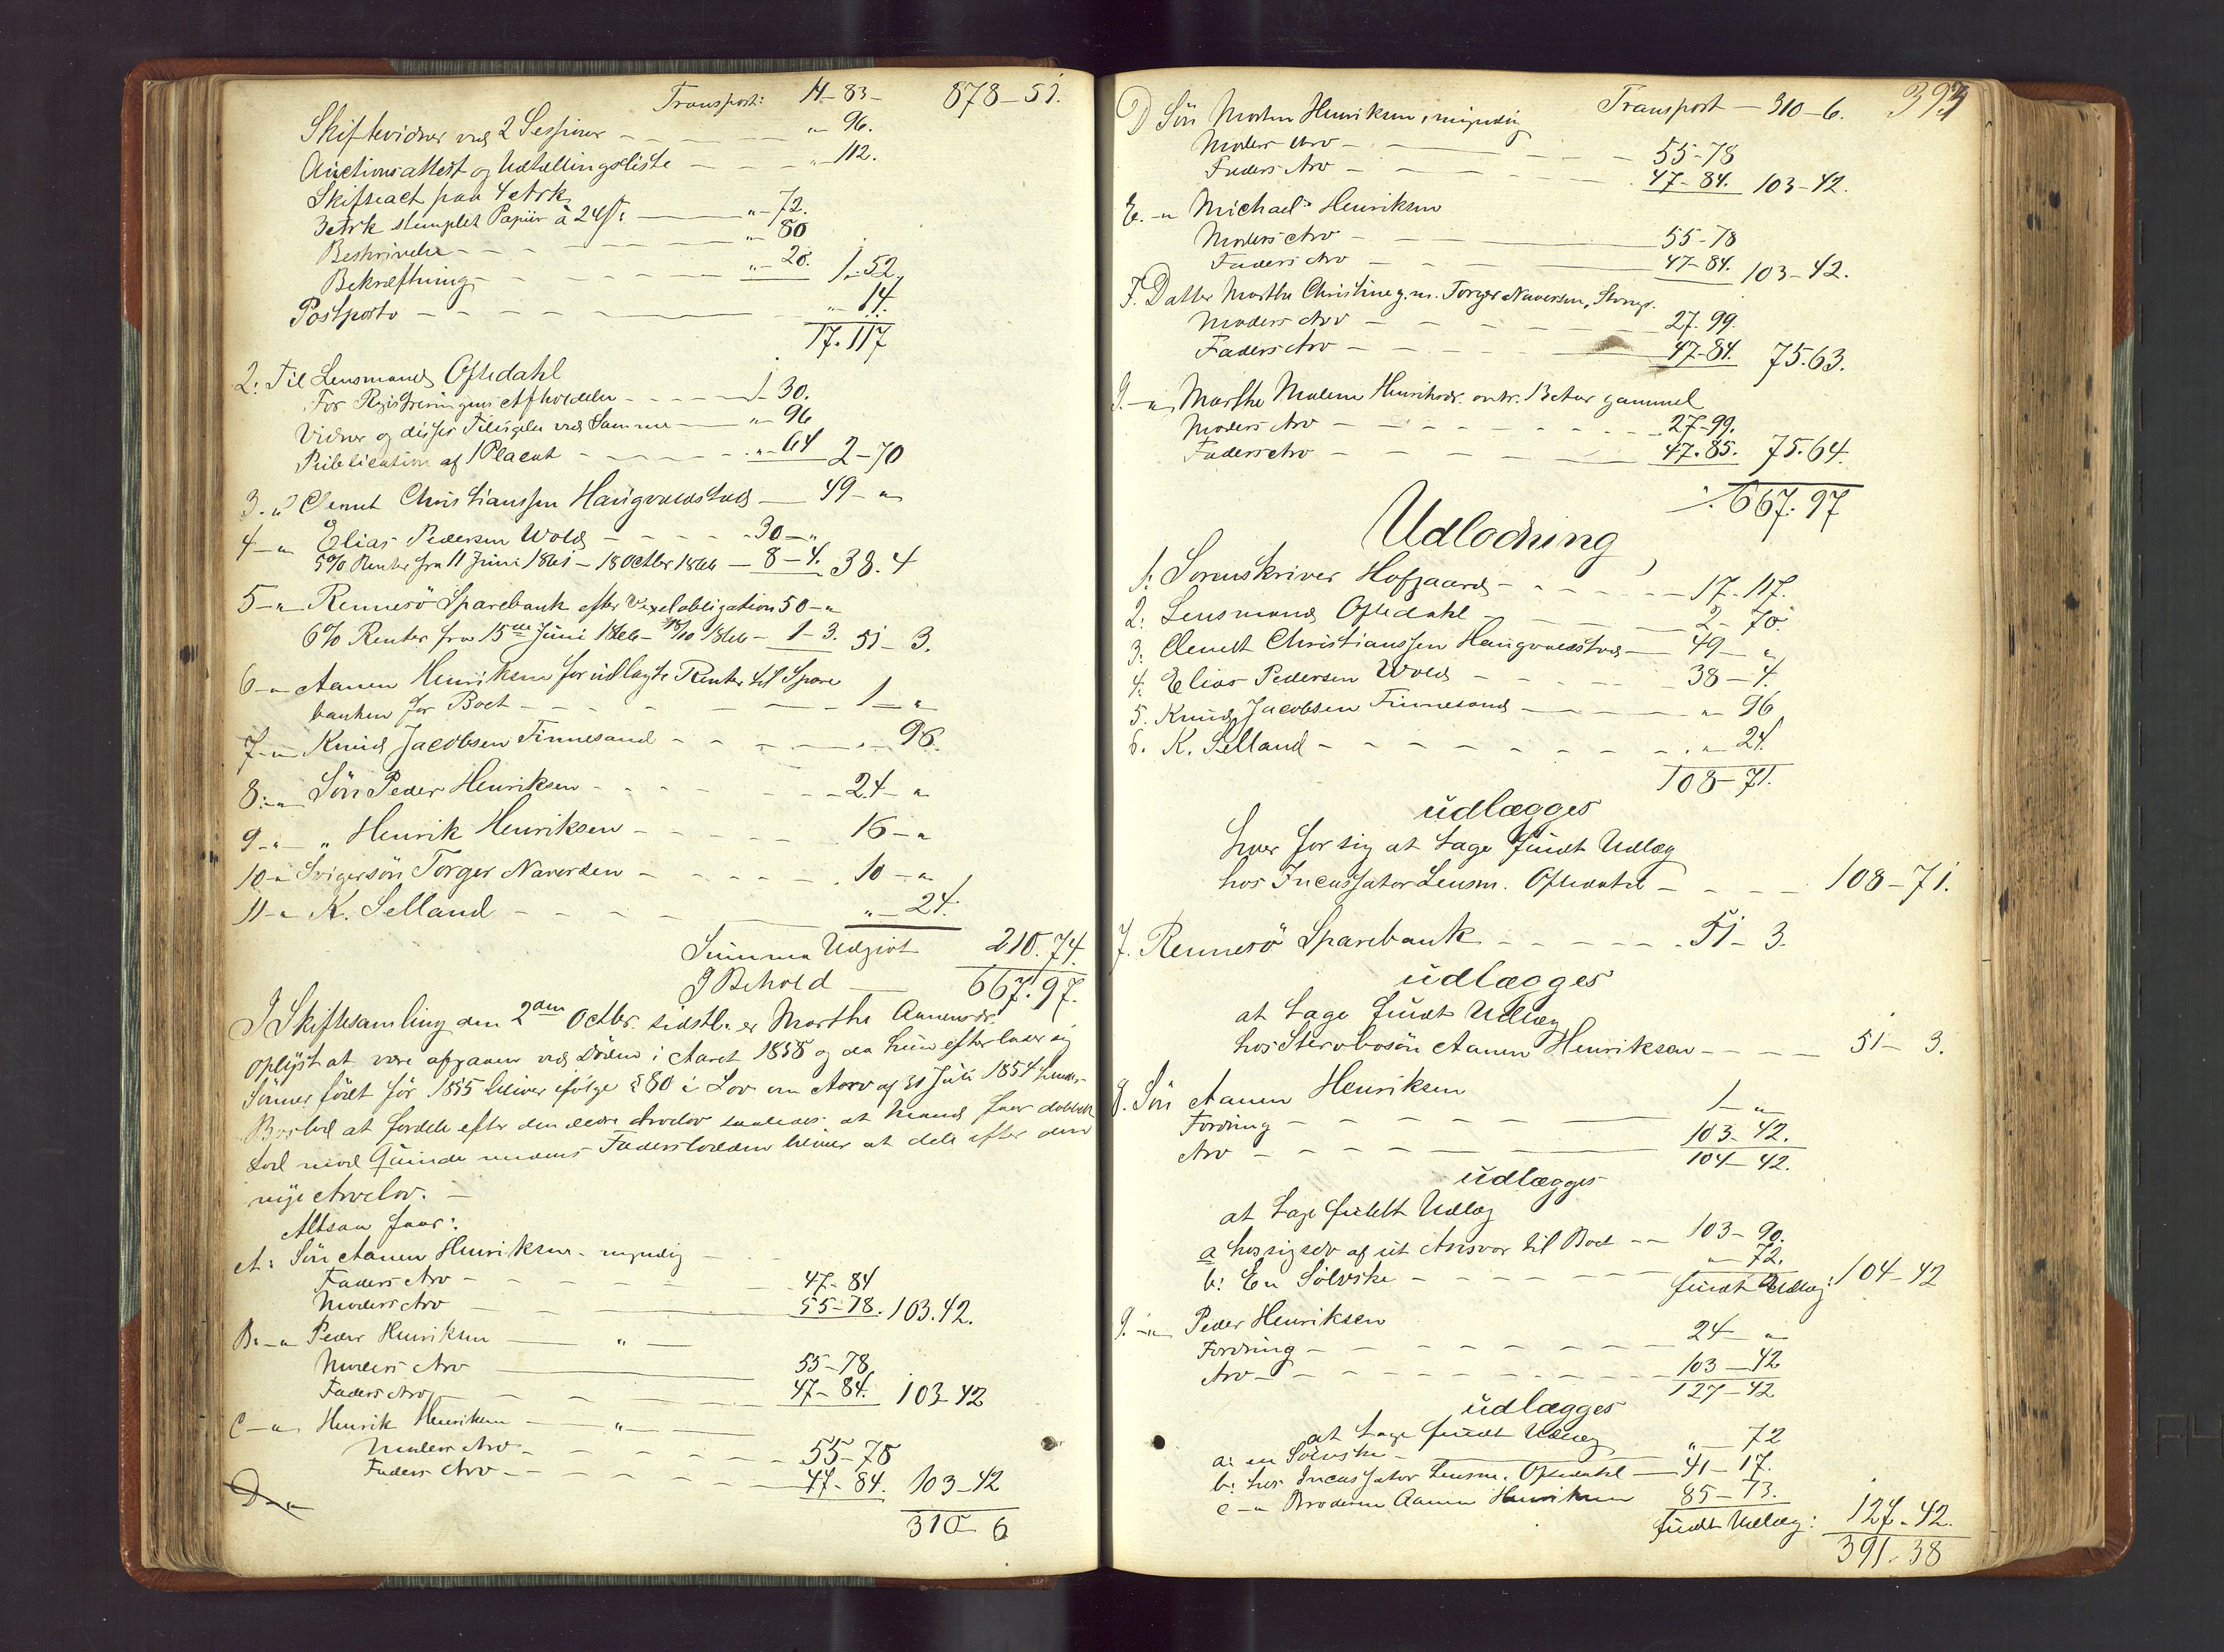 Transport: 14-83- 878-51.
Skiftevidner ved 2 Sessioner - " 96.
Auctionsattest og Udtællingsliste - - - " 112.
Skifteact paa 4 Ark
3 Ark stemplet Papiir à 24 s: - " 72.
Beskrivelse - - - " 80
Bekræftning - - - " 20. 1-52.
Postporto - - - - " 14.
17-117
2: Til Lensmand Oftedahl
For Registreringens Afholdelse - - - - 1-30.
Vidner og disses Tilsigelse ved Samme - " 96
Publication af 1 Placat - - - - - " 64 2-70
3. " Clemet Christianssen Haugvaldstad - 49 - "
4 - " Elias Pedersen Wold - - - - 30 - "
5% Renter fra 11 Juni 1861 - 18 Octbr 1866 - 8-4. 38.4
5 - " Rennesö Sparebank efter Vexelobligation 50 - "
6% Renter fra 15de Juni 1866 - 18/10 1866 - 1-3. 51-3.
6 - " Aanen Henriksen for udlagte Renter til Spare
banken for Boet - - - - - 1 - "
7 - " Knud Jacobsen Finnesand - - - - " 96.
8: - " Sön Peder Henriksen - - - - 24 - "
9 - " - " Henrik Henriksen - - - - 16 - "
10 - " Svigersön Torger Naversen - - - - 10 - "
11 - " K. Selland - - - - " - 24.
Summa Udgivt 210.74.
I Behold - 667.97.
I Skiftesamling den 2den Octbr. sidstl. er Marthe Aanensdr.
oplyst at være afgaaen ved Döden i Aaret 1858 og da hun efterlader sig
Sönner födt för 1855 bliver ifölge § 80 i Lov om Arv af 31 Juli 1854 hendes
Boslod at fordele efter den ældre Arvelov saaledes at Mand faar dobbelt
Lod mod Qvinde medens Fadersloddem bliver at dele efter den
nye Arvelov. -
Altsaa faar:
A: Sön Aanen Henriksen - myndig -
Faders Arv - - - - - 47-84
Moders Arv - - - 55-78. 103.42.
B: - " Peder Henriksen - " -
Moders Arv - 55-78
Faders Arv - - - - 47-84. 103-42
C - " Henrik Henriksen - " -
Moders Arv - - - - - 55-78
Faders Arv - - - - - 47-84. 103-42
D - "
310-6
393
Transport - 310-6.
D Sön Morten Henriksen, myndig
Moders Arv - - - - - 55-78
Faders Arv - - - - - 47-84. 103-42.
E. - " Michael Henriksen
Moders Arv - - - 55-78
Faders Arv - - - 47-84. 103-42.
F. Datter Marthe Christine g. m. Torger Naversen,
Moders Arv - - - - - 27-99.
Faders Arv - - - - - 47-84. 75.63.
G. - " Marthe Malene Henriksdr. omtr. 13 Aar gammel
Moders Arv - - - - - 27-99.
Faders Arv - - - - - 47.85. 75.64.
667.97
Udlodning,
1: Sorenskriver Hofgaard - - - - - 17-117.
2: Lensmand Oftedahl - - - 2-70.
3: Clemet Christianssen Haugvaldstad - 49 - "
4: Elias Pedersen Wold - - - - 38-4.
5. Knud Jacobsen Finnesand - - " 96
6. K. Selland - - - - - - - " 24.
108-71.
udlægges
hver for sig at tage fuldt Udlæg
hos Incassator Lensm. Oftedahl - - - - 108-71.
7. Rennesö Sparebank - - - - - 51-3.
udlægges
at tage fuldt Udlæg
hos Stervbosön Aanen Henriksen - - - - 51-3.
8. Sön Aanen Henriksen
Fordring - - - - - 1 - "
Arv - - - - - 103-42.
104-42.
udlægges
at tage fuldt Udlæg
a hos sig selv af sit Ansvar til Boet - - 103-90.
b: En Sölvske - - - - - " 72.
fuldt Udlæg: 104-42
9. - " Peder Henriksen
Fordring - - - - - 24 - "
Arv - - - - - 103-42
127-42
udlægges
at tage fuldt Udlæg
a: en Sölvske - " - 72
b: hos Incassator Lensm. Oftedahl - 41-17.
c - " Broderen Aanen Henriksen 85-73.
fuldt Udlæg: 127-42.
391.38